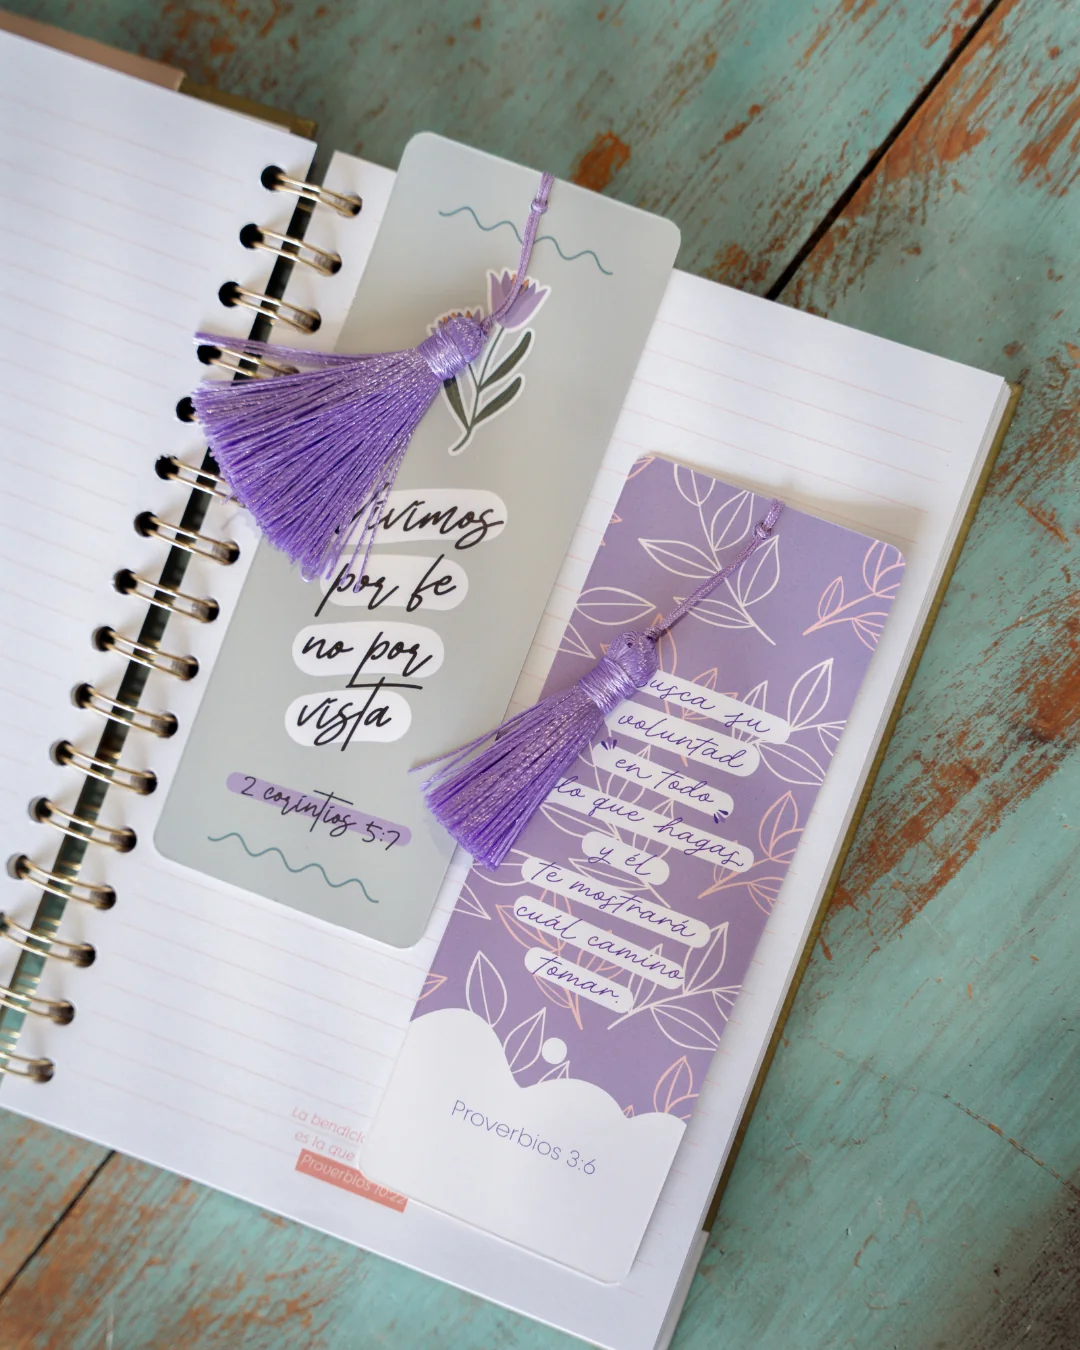 vivimos
por fe
no por
vista
2 corintios 5:7
busca su
voluntad
en todo
lo que hagas
y él
te mostrará
cuál camino
tomar.
Proverbios 3:6
La
es la que
Proverbios 10:22